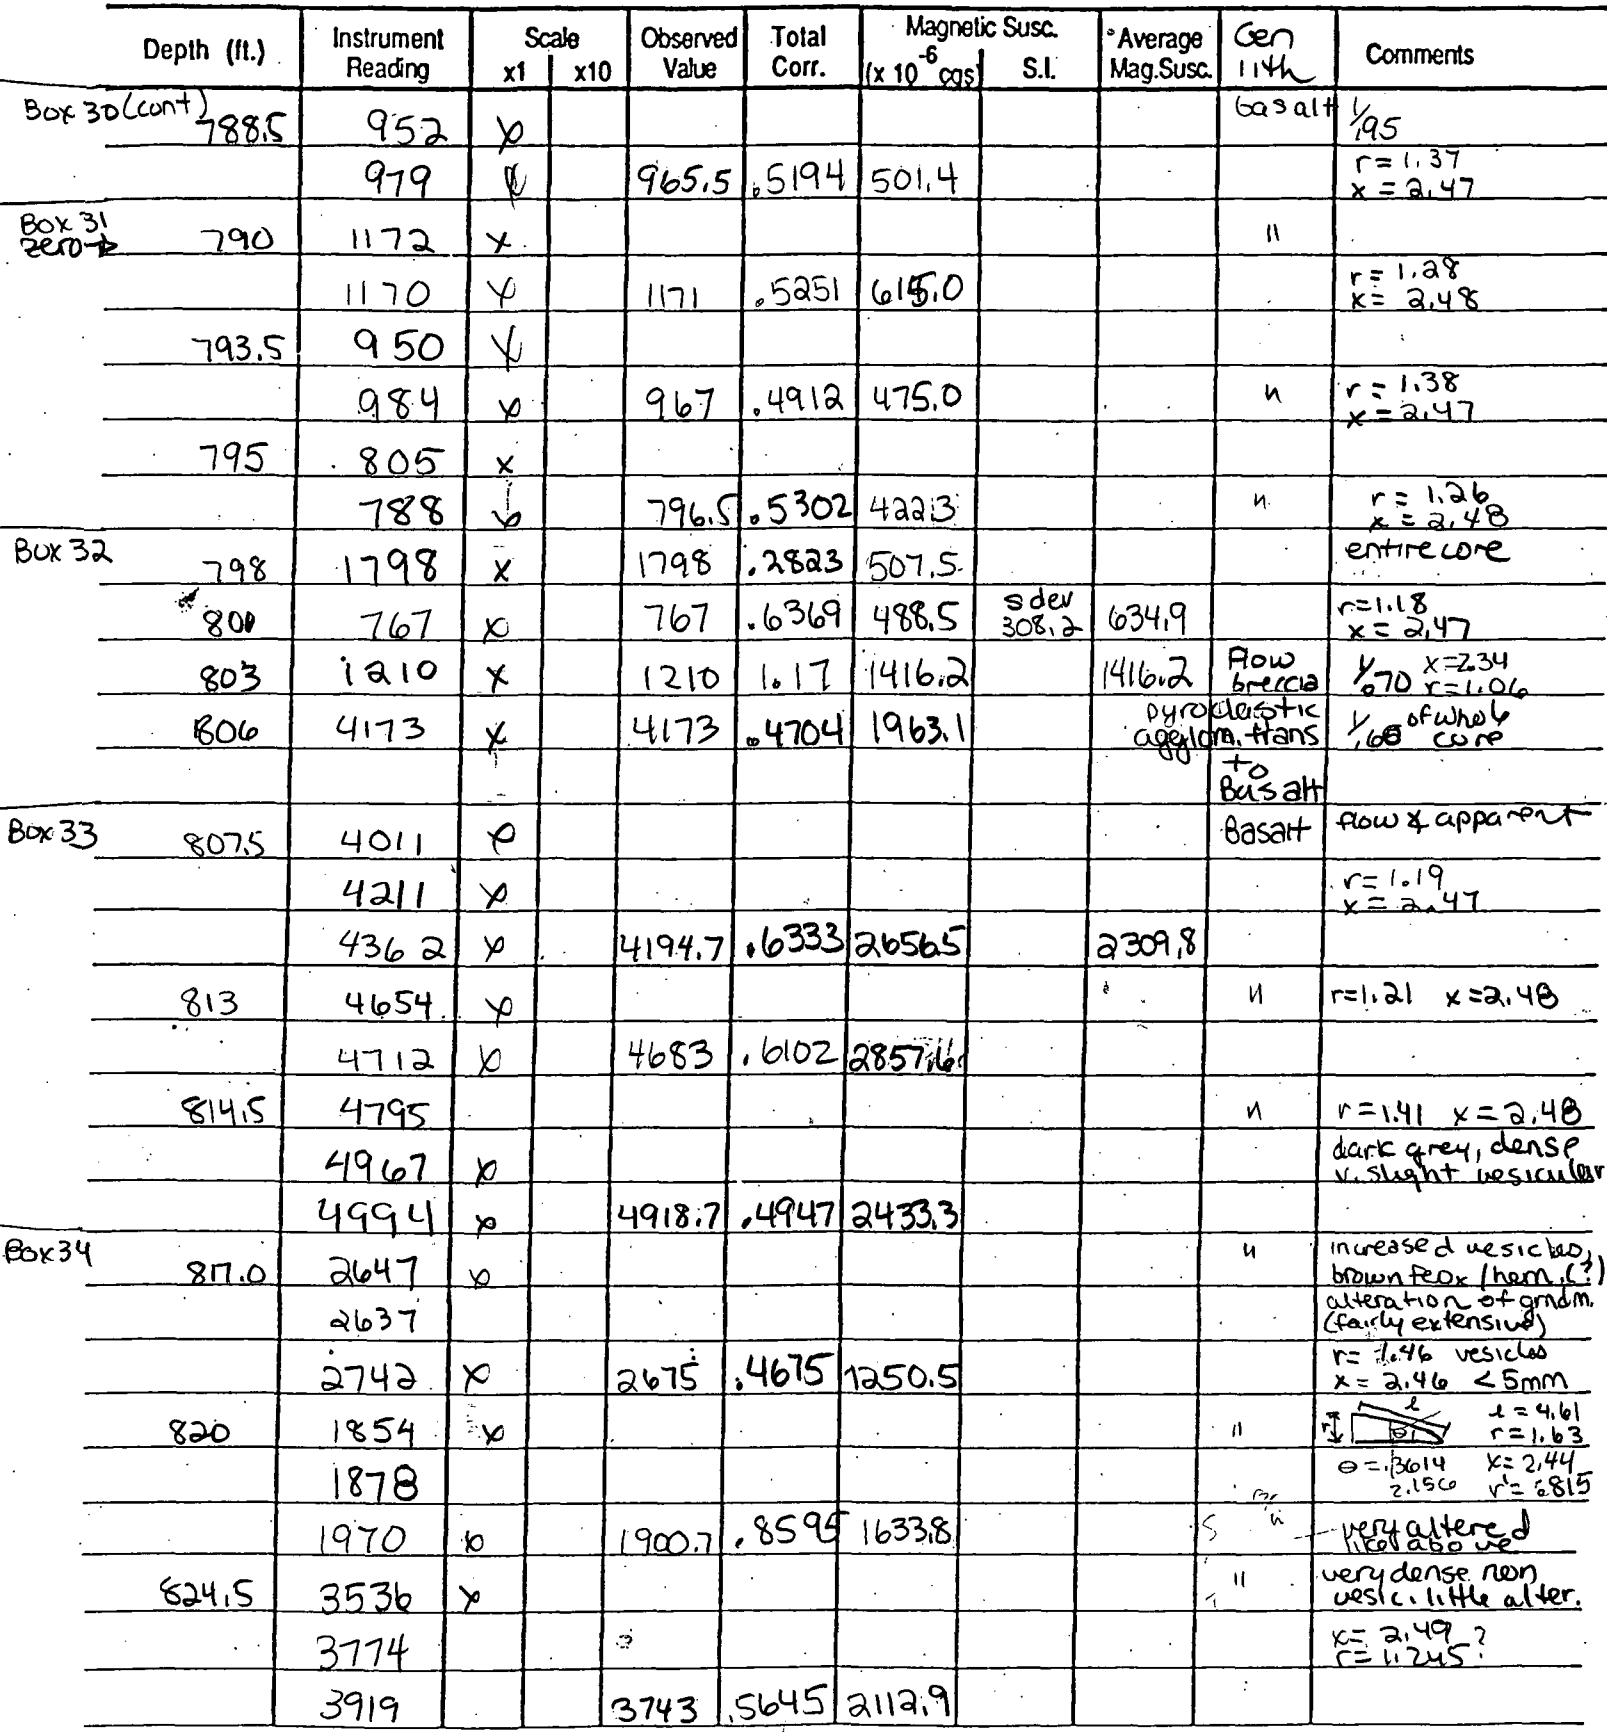 Depth (ft.) Instrument Reading Scale x1 x10 Observed Value Total Corr. Magnetic Susc. (x 10^-6 cgs) S.I. Average Mag.Susc. Gen lith Comments
Box 30 (cont) 788.5 952 x basalt 1/.95
979 x 965.5 .5194 501.4 r = 1.37 x = 2.47
Box 31 zero→ 790 1172 x "
1170 x 1171 .5251 615.0 r = 1.28 x = 2.48
793.5 950 x
984 x 967 .4912 475.0 " r = 1.38 x = 2.47
795 805 x
788 x 796.5 .5302 422.3 " r = 1.26 x = 2.48
Box 32 798 1798 x 1798 .2823 507.5 entire core
800 767 x 767 .6369 488.5 s dev 308.2 634.9 r=1.18 x = 2.47
803 1210 x 1210 1.17 1416.2 1416.2 Flow breccia 1/.70 x=2.34 r=1.06
806 4173 x 4173 .4704 1963.1 pyroclastic agglom. trans 1/.60 of whole core
to Basalt
Box 33 807.5 4011 x Basalt flow & apparent
4211 x r=1.19 x = 2.47
4362 x 4194.7 .6333 2656.5 2309.8
813 4654 x " r=1.21 x=2.48
4712 x 4683 .6102 2857.6
814.5 4795 " r=1.41 x=2.48
4967 x dark grey, dense v. slight vesicular
4994 x 4918.7 .4947 2433.3
Box 34 817.0 2647 x " increased vesicles, brown feox / hem. (?)
2637 alteration of grndm. (fairly extensive)
2742 x 2675 .4675 1250.5 r= 1.46 vesicles x = 2.46 <5mm
820 1854 x " r l θ l = 4.61 r = 1.63
1878 θ = .3614 2.156 x= 2.44 r'= .6815
1970 x 1900.7 .8595 1633.8 " very altered like above
824.5 3536 x " very dense non vesic. little alter.
3774 x= 2.49 ? r= 1.245 ?
3919 3743 .5645 2112.9